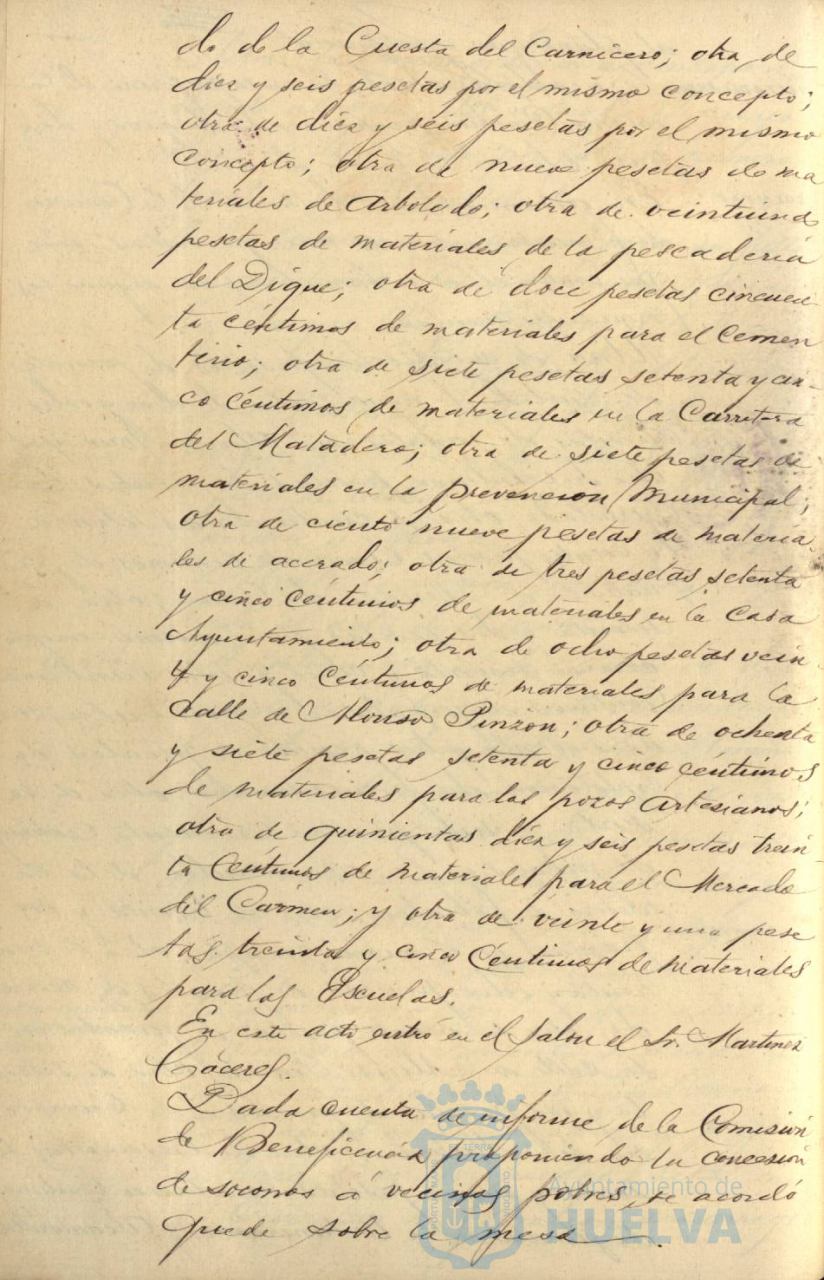 do de la Cuesta del Carnicero; otra de
diez y seis pesetas por el mismo concepto;
otra de diez y seis pesetas por el mismo
concepto; otra de nueve pesetas de ma
teriales de Arbolado; otra de veintiuna
pesetas de materiales de la pescaderia
del Dique; otra de doce pesetas cincuen
ta céntimos de materiales para el Cemen
terio; otra de siete pesetas setenta y cin-
co Céntimos de materiales en la Carretera
del Matadero; otra de siete pesetas de
materiales en la prevención Municipal;
otra de ciento nueve pesetas de materia
les de acerado; otra de tres pesetas setenta
y cinco Céntimos de materiales en la Casa
Ayuntamiento; otra de ocho pesetas vein
te y cinco Céntimos de materiales para la
Calle de Alonso Pinzón; otra de ochenta
y siete pesetas setenta y cinco céntimos
de materiales para los pozos Artesianos;
otra de quinientas diez y seis pesetas trein
ta Céntimos de materiales para el Mercado
del Cármen; y otra de veinte y una pese
tas treinta y cinco Céntimos de materiales
para las Escuelas.
En este acto entró en el Salon el Sr. Martinez
Cáceres.
Dada cuenta de informe de la Comisión
de Beneficencia proponiendo la concesión
de socorros á vecinos pobres, se acordó
quede sobre la mesa.
Ayuntamiento de
HUELVA